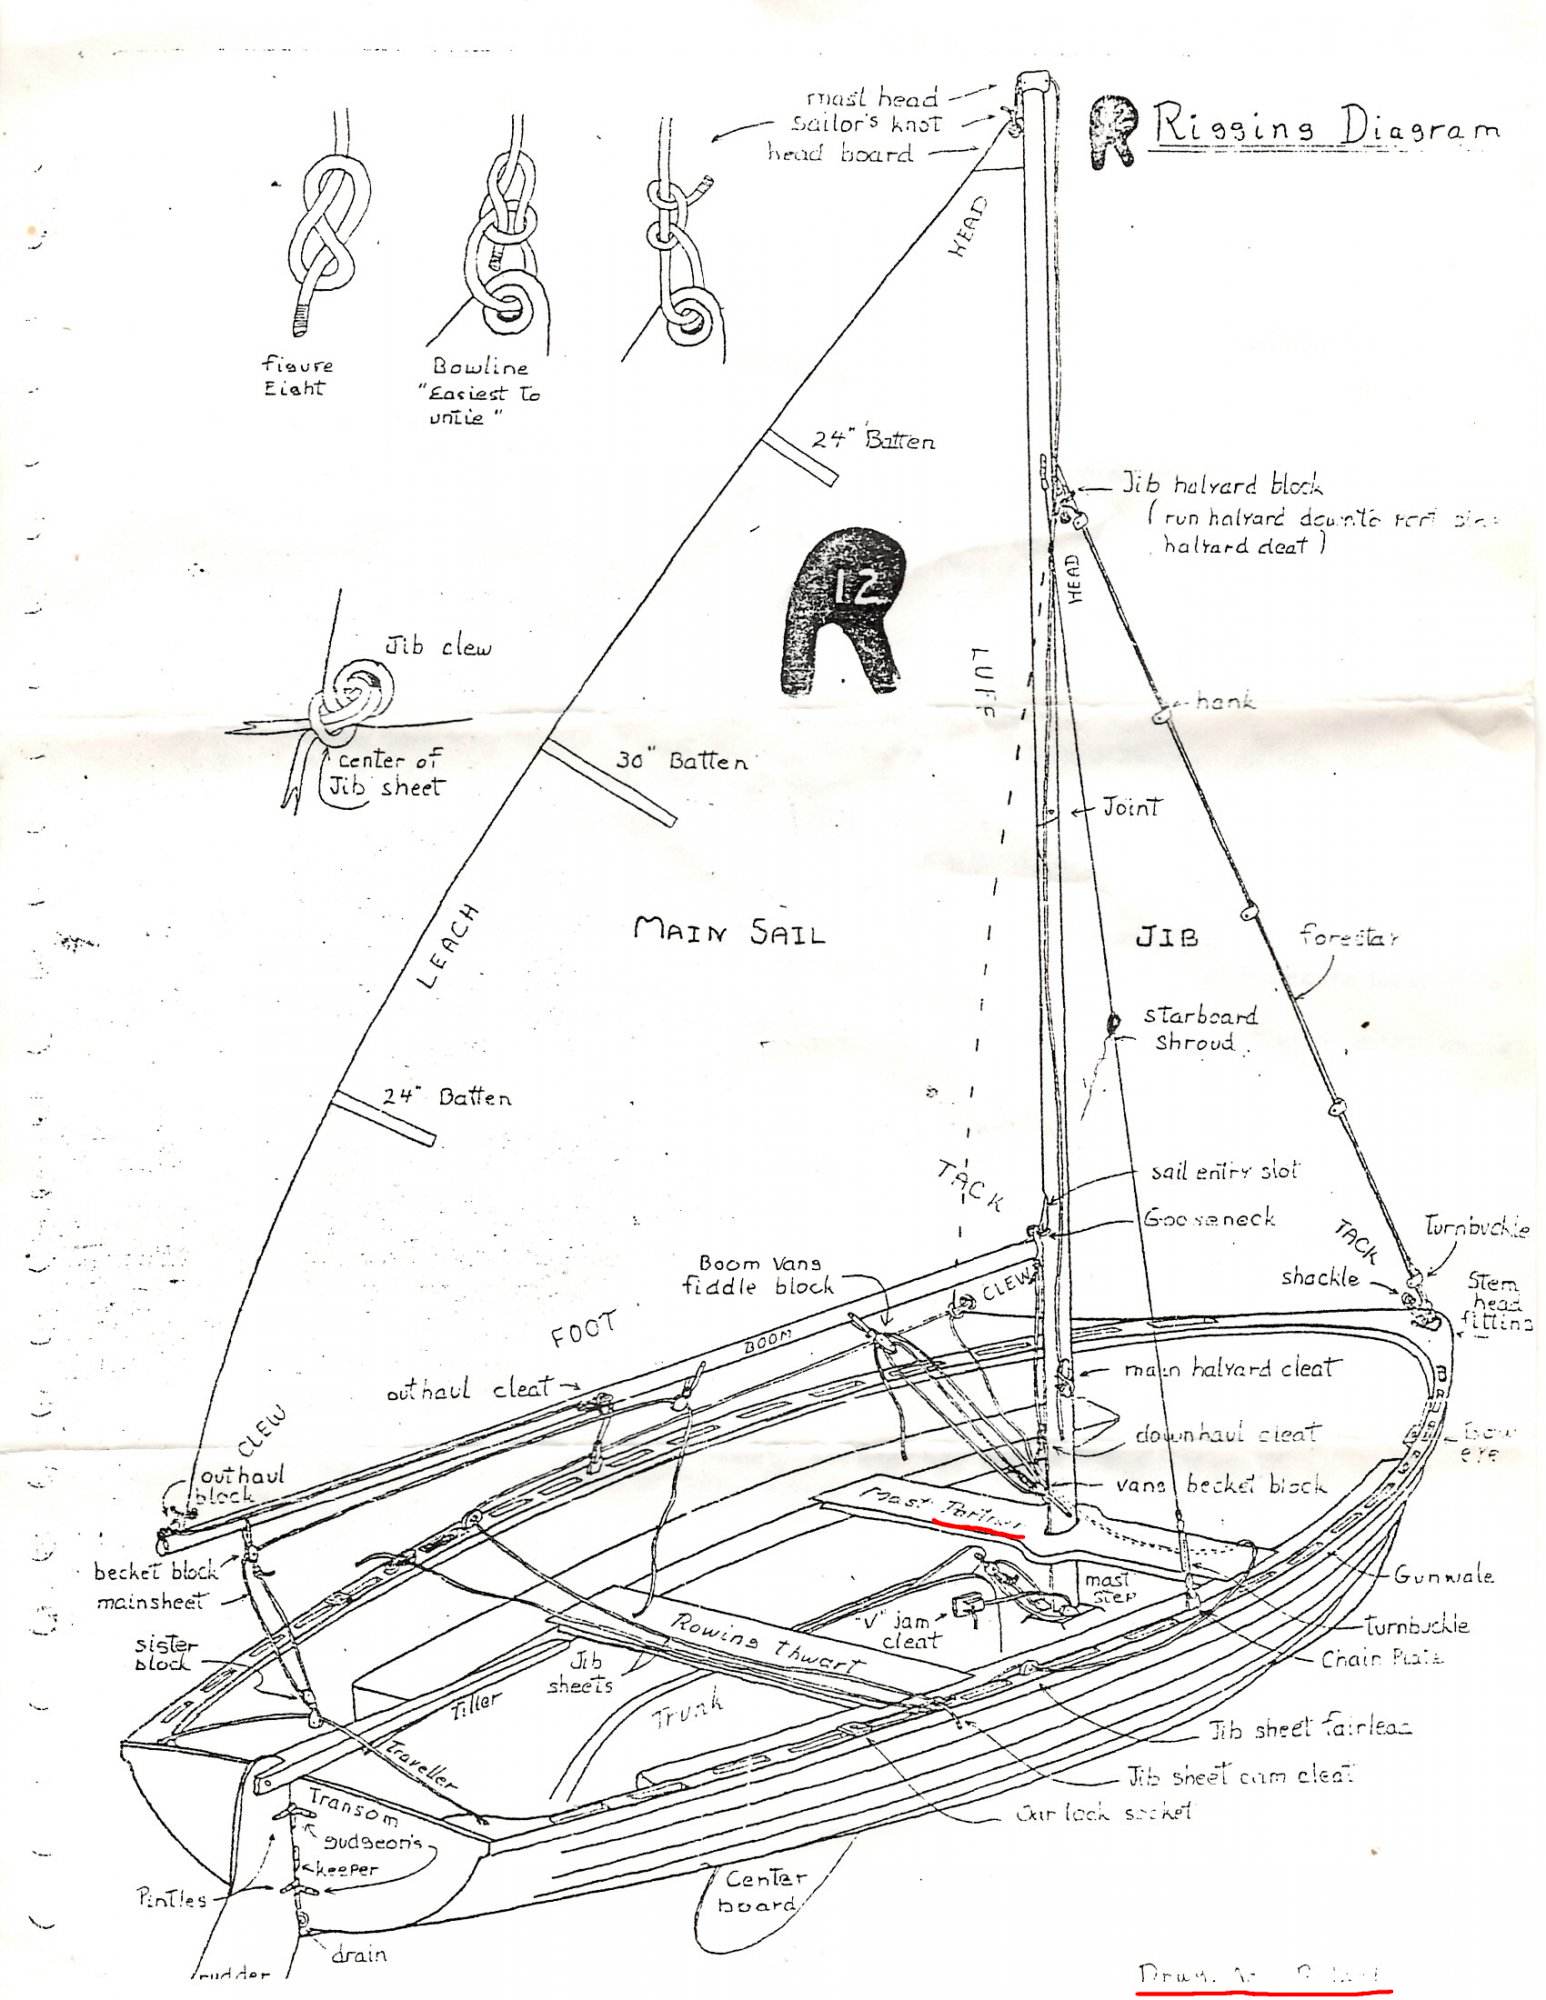 mast head
Sailor's knot
head board
R Rigging Diagram
HEAD
figure
Eight
Bowline
"Easiest to
untie"
24" Batten
Jib halyard block
(run halyard down to port
halyard cleat)
HEAD
12
Jib clew
center of
Jib sheet
LUFF
hank
30" Batten
Joint
LEACH
MAIN SAIL
JIB
forestay
starboard
shroud
24" Batten
TACK
sail entry slot
Gooseneck
TACK
Turnbuckle
Boom Vang
fiddle block
CLEW
shackle
Stem
head
fitting
FOOT
BOOM
outhaul cleat
main halyard cleat
CLEW
downhaul cleat
bow
eye
outhaul
block
vang becket block
Mast Partner
becket block
mainsheet
mast
step
Gunwale
"V" jam
cleat
sister
block
Rowing thwart
turnbuckle
Chain Plate
Jib
sheets
Tiller
Trunk
Jib sheet fairlead
Traveller
Jib sheet cam cleat
Transom
Oar lock socket
gudgeon's
keeper
Pintles
Center
board
drain
rudder